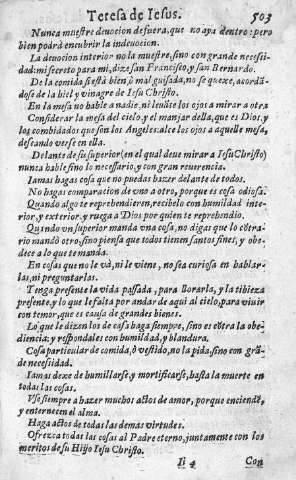 Teresa de Iesus. 503
Nunca muestre deuocion de fuera, que no aya dentro: pero
bien podrà encubrir la indeuocion.
La deuocion interior no la muestre, sino con grande necessi-
dad: mi secreto para mi, dize san Francisco, y san Bernardo.
De la comida si està bien, ò mal guisada, no se quexe, acordã-
dose de la hiel y vinagre de Iesu Christo.
En la mesa no hable a nadie, ni leuãte los ojos a mirar a otra
Considerar la mesa del cielo, y el manjar della, que es Dios, y
los combidados que son los Angeles: alce los ojos a aquella mesa,
deseando verse en ella.
Delante de su superior (en el qual deue mirar a Iesu Christo)
nunca hable sino lo necessario, y con gran reuerencia.
Iamas hagas cosa que no puedas hazer delante de todos.
No hagas comparacion de vno a otro, porque es cosa odiosa.
Quando algo te reprehendieren, recibelo con humildad inte-
rior, y exterior, y ruega a Dios por quien te reprehendio.
Quando vn superior manda vna cosa, no digas que lo cõtra-
rio mandò otro, sino piensa que todos tienen santos fines, y obe-
dece a lo que te manda.
En cosas que no le và, ni le viene, no sea curiosa en hablar-
las, ni preguntarlas.
Tenga presente la vida passada, para llorarla, y la tibieza
presente, y lo que le falta por andar de aqui al cielo, para viuir
con temor, que es causa de grandes bienes.
Lo que le dizen los de casa haga siempre, sino es cõtra la obe-
diencia: y respondales con humildad, y blandura.
Cosa particular de comida, ò vestido, no la pida, sino con grã-
de necessidad.
Iamas dexe de humillarse, y mortificarse, hasta la muerte en
todas las cosas.
Vse siempre a hazer muchos actos de amor, porque enciende,
y enternecen el alma.
Haga actos de todas las demas virtudes.
Ofrezca todas las cosas al Padre eterno, juntamente con los
meritos de su Hijo Iesu Christo.
Ii 4 Con